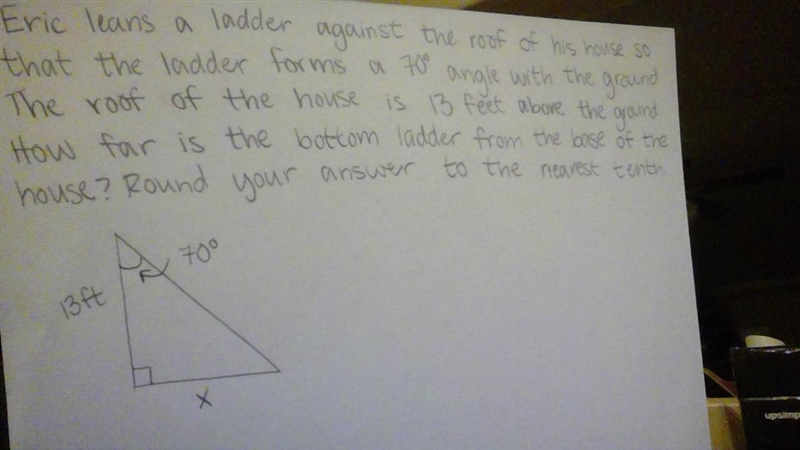 Eric leans a ladder against the roof of his house so
that the ladder forms a 70° angle with the ground
The roof of the house is 13 feet above the ground.
How far is the bottom ladder from the base of the
house? Round your answer to the nearest tenth.
70°
13ft
x
upsimp